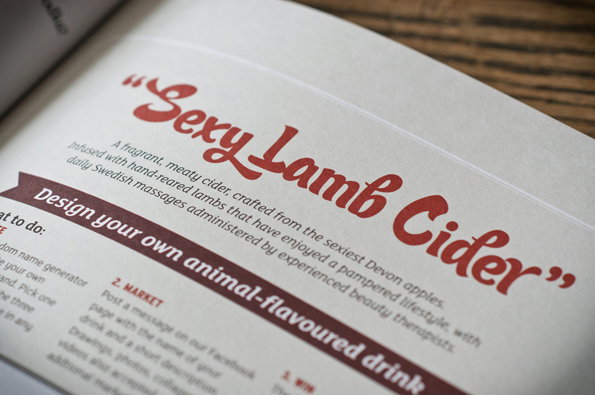 “Sexy Lamb Cider”
A fragrant, meaty cider, crafted from the sexiest Devon apples.
Infused with hand-reared lambs that have enjoyed a pampered lifestyle, with
daily Swedish massages administered by experienced beauty therapists.
Design your own animal-flavoured drink
at to do:
dom name generator
e your own
and. Pick one
he three
e in any
2. MARKET
Post a message on our Facebook
page with the name of your
drink and a short description.
Drawings, photos,
videos also accepted
additional
3. WIN